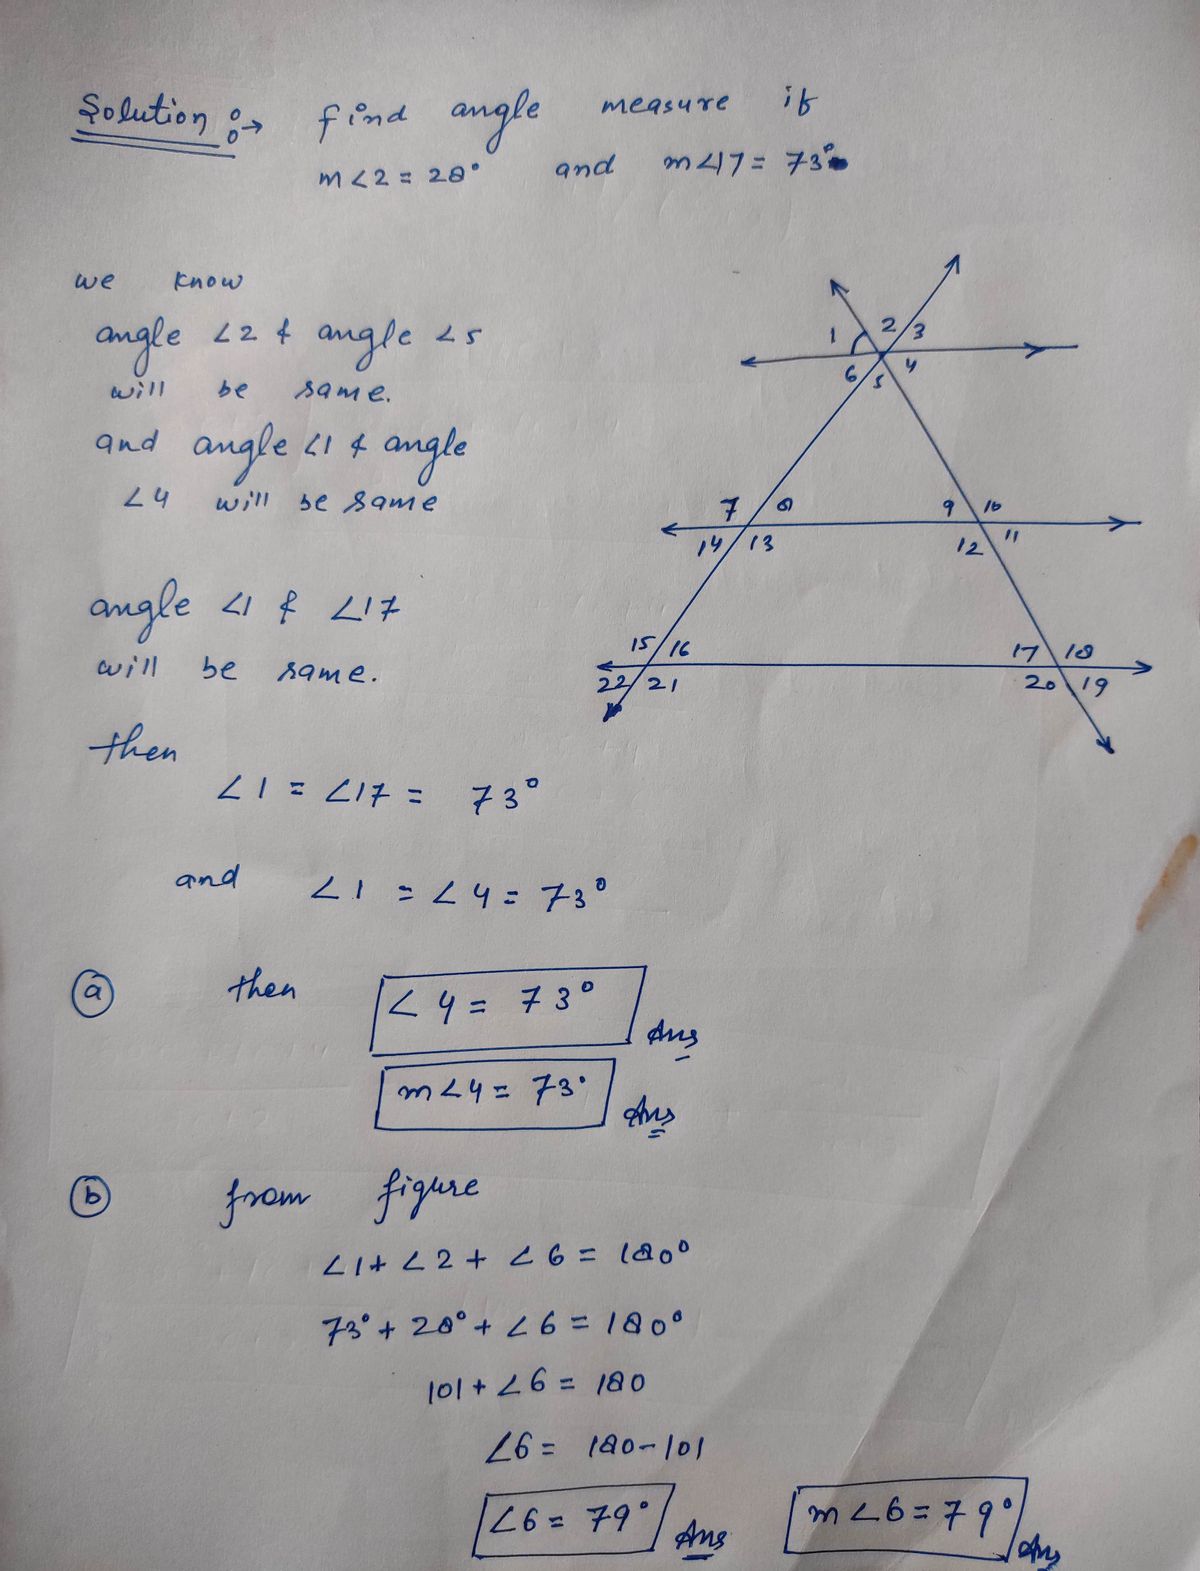 Solution :→ find angle measure if
m∠2 = 28° and m∠17 = 73°
we know
angle ∠2 & angle ∠5
will be same.
and angle ∠1 & angle
∠4 will be same
angle ∠1 & ∠17
will be same.
1 2 3
6 5 4
7 8 9 10
14 13 12 11
15 16 17 18
22 21 20 19
then
∠1 = ∠17 = 73°
and ∠1 = ∠4 = 73°
(a) then ∠4 = 73° Ans
m∠4 = 73° Ans
(b) from figure
∠1 + ∠2 + ∠6 = 180°
73° + 28° + ∠6 = 180°
101 + ∠6 = 180
∠6 = 180 - 101
∠6 = 79° Ans m∠6 = 79° Ans